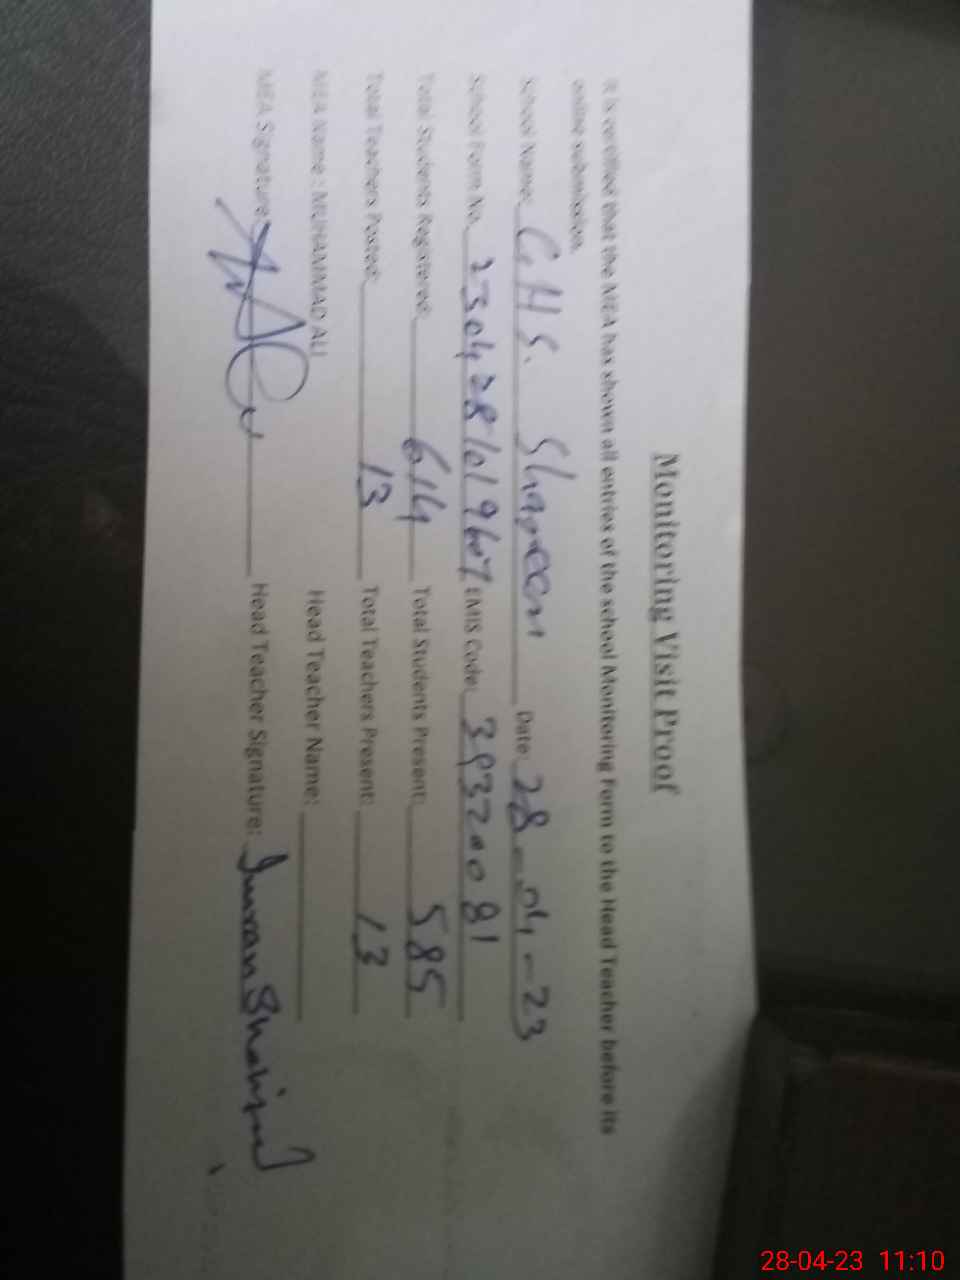 Monitoring Visit Proof
It is certified that the MEA has shown all entries of the school Monitoring Form to the Head Teacher before its
online submission.
School Name: GHS. Shaheen Date: 28-04-23
School Form No. 230428101967 EMIS Code: 39320081
Total Students Registered: 614 Total Students Present: 585
Total Teachers Posted: 13 Total Teachers Present: 13
MEA Name: MUHAMMAD ALI Head Teacher Name:
MEA Signature: Head Teacher Signature: Imran Shahid
28-04-23 11:10